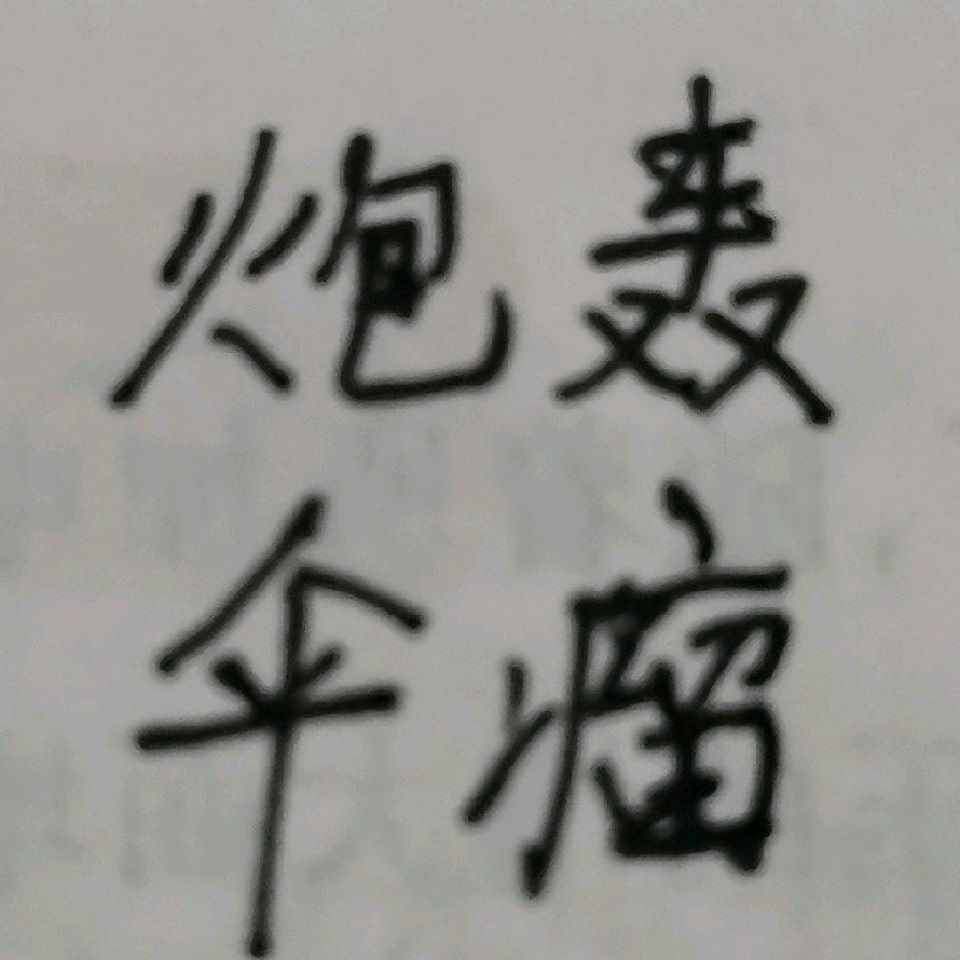 炮轰
伞瘤